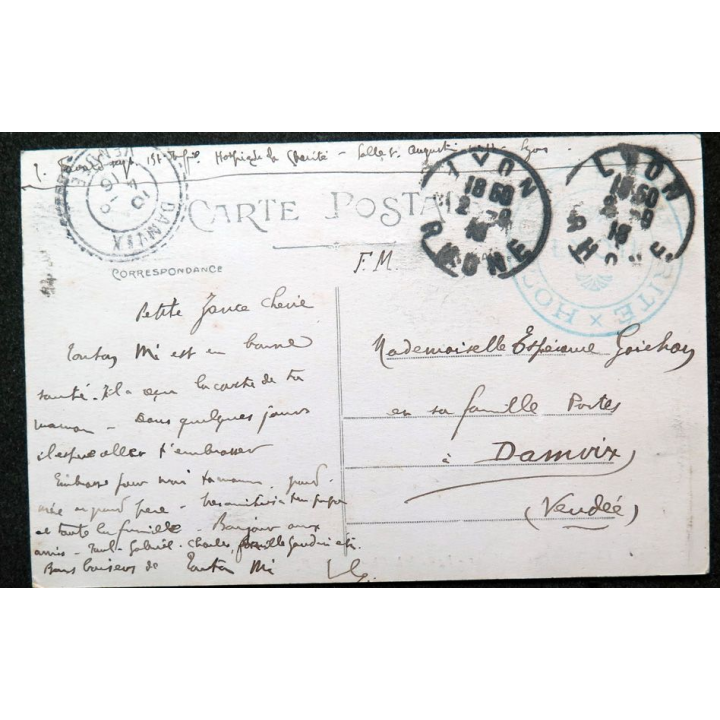 Hospice de la Charité - Salle St Augustin Lyon
CARTE POSTALE
CORRESPONDANCE
F.M.
DAMVIX
VENDEE
LYON
18 50
2 - 9
16
RHONE
LYON
18 50
2 - 9
16
RHONE
RITE × HO
Petite Jeance Cherie
Tonton Mi est en bonne
santé. Il a reçu la carte de ta
maman - Dans quelques jours
il espère aller t'embrasser
Embrasse pour moi ta maman, grand
mère et grand père - 
et toute la famille - Bonjour aux
amis - Paul - Gabriel - Charles, famille etc.
Bons baisers de Tonton Mi
Mademoiselle Espérance Goichon
en sa famille Portes
à Damvix
(Vendée)